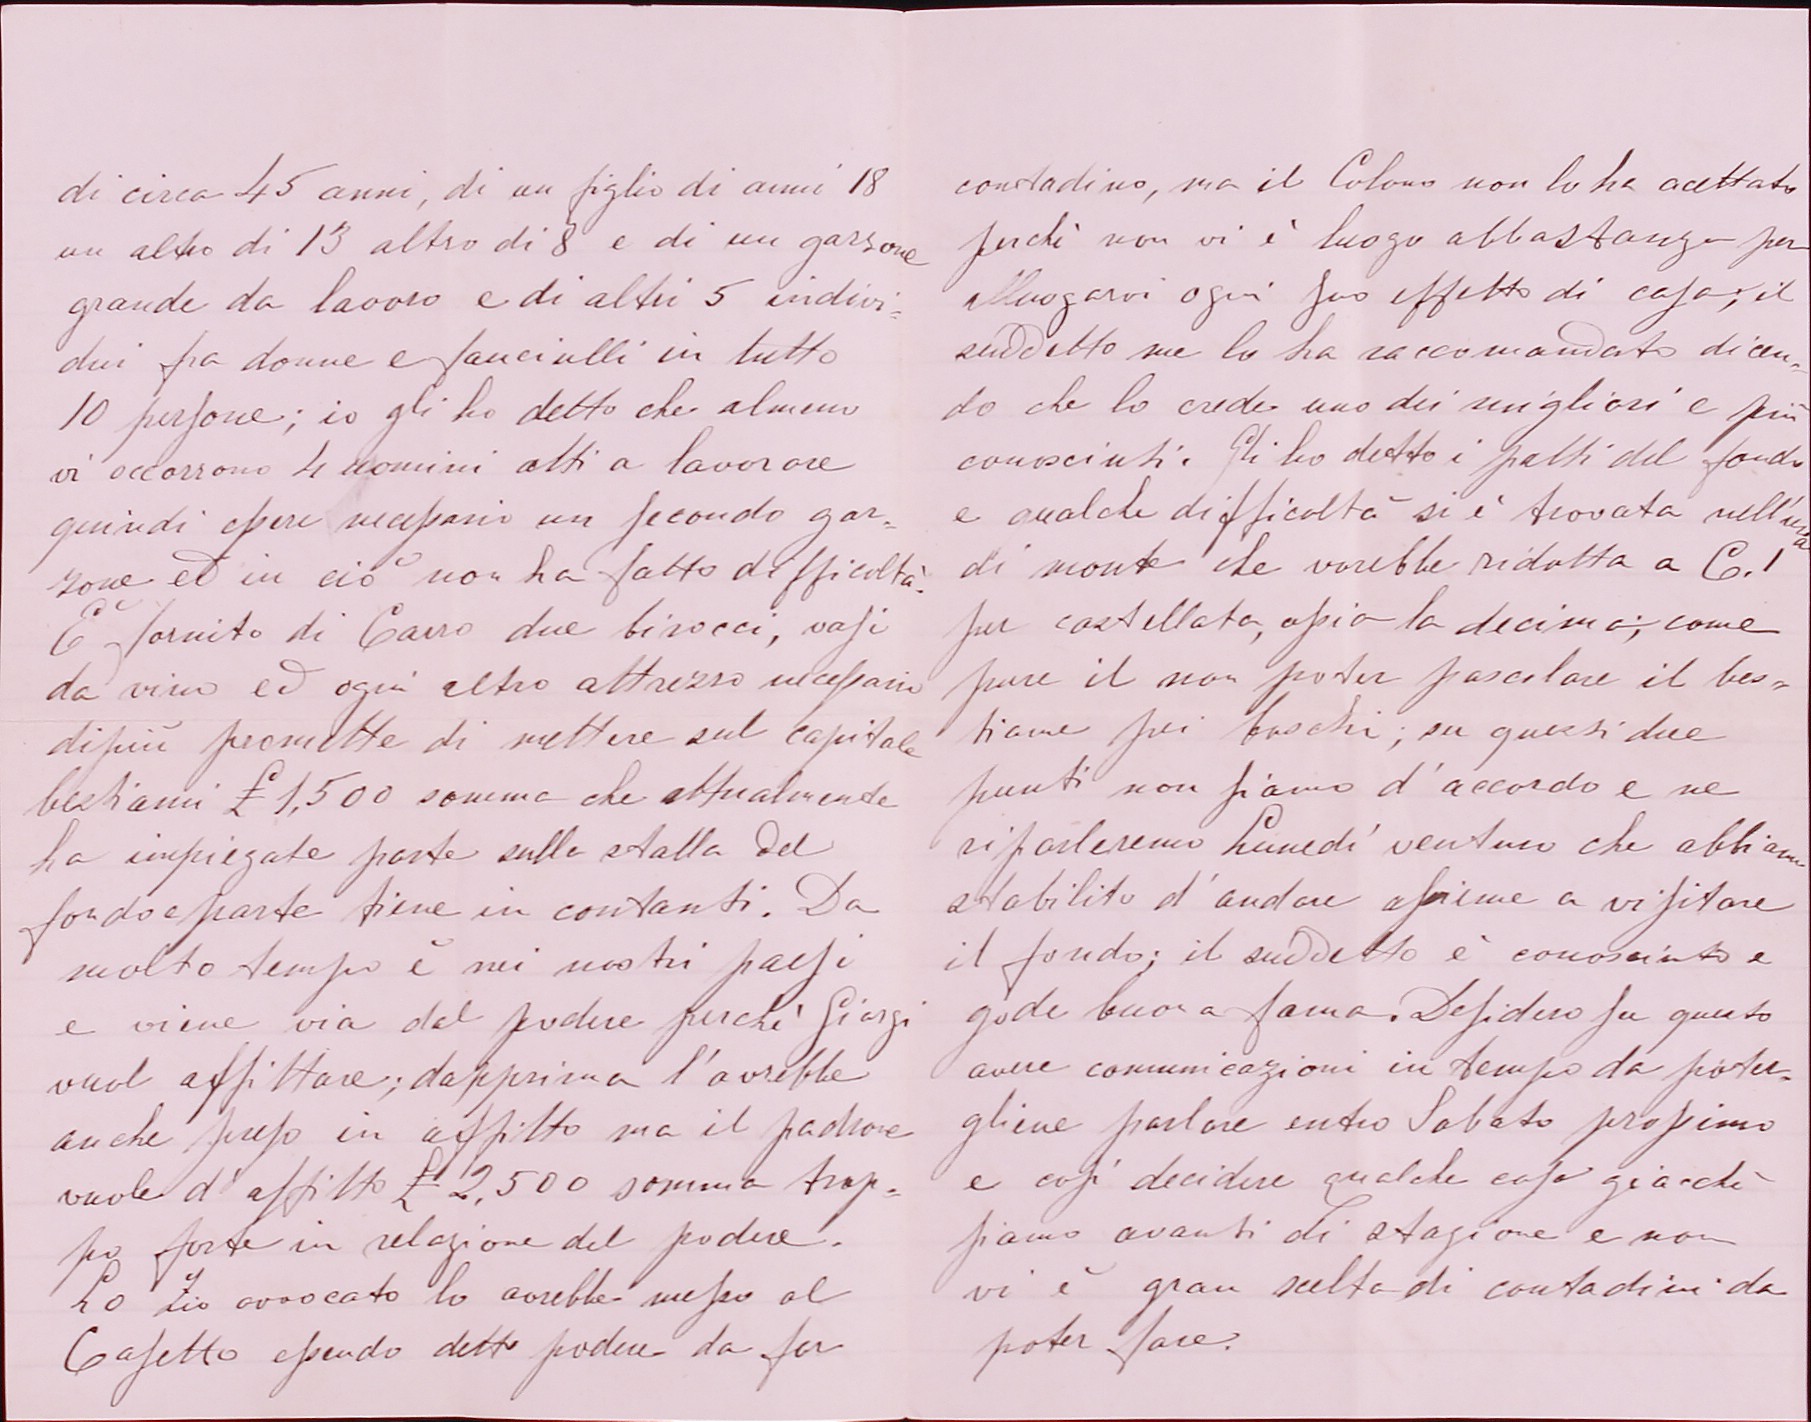 di circa 45 anni, di un figlio di anni 18
un altro di 13 altro di 8 e di un garzone
grande da lavoro e di altri 5 indivi-
dui fra donne e fanciulli in tutto
10 persone; io gli ho detto che almeno
vi occorrono 4 uomini atti a lavorare
quindi essere necessario un secondo gar-
zone ed in ciò non ha fatto difficoltà.
È fornito di Carro due birocci, vasi
da vino ed ogni altro attrezzo necessario
dipiù promette di mettere sul capitale
bestiami £ 1,500 somma che attualmente
ha impiegate parte sulla stalla del
fondo e parte tiene in contanti. Da
molto tempo è nei nostri paesi
e viene via dal podere perchè Giorgi
vuol affittare; dapprima l'avrebbe
anche preso in affitto ma il padrone
vuole d'affitto £ 2,500 somma trop-
po forte in relazione del podere.
Lo Zio avvocato lo avrebbe messo al
Casetto essendo detto podere da far
contadino, ma il Colono non lo ha acettato
perchè non vi è luogo abbastanza per
alluogarvi ogni suo effetto di casa; il
suddetto me lo ha raccomandato dicen-
do che lo crede uno dei migliori e più
conosciuti. Gli ho detto i patti del fondo
e qualche difficoltà si è trovata nell'uva
di monte che vorebbe ridotta a C. 1
per castellata, ossia la decima; come
pure il non poter pascolare il bes-
tiame pei boschi; su questi due
punti non siamo d'accordo e ne
riparleremo Lunedì venturo che abbiam
stabilito d'andare assieme a visitare
il fondo; il suddetto è conosciuto e
gode buona fama. Desidero su questo
avere comunicazioni in tempo da poter-
gliene parlare entro Sabato prossimo
e così decidere qualche cosa giacchè
siamo avanti di stagione e non
vi è gran scelta di contadini da
poter fare.